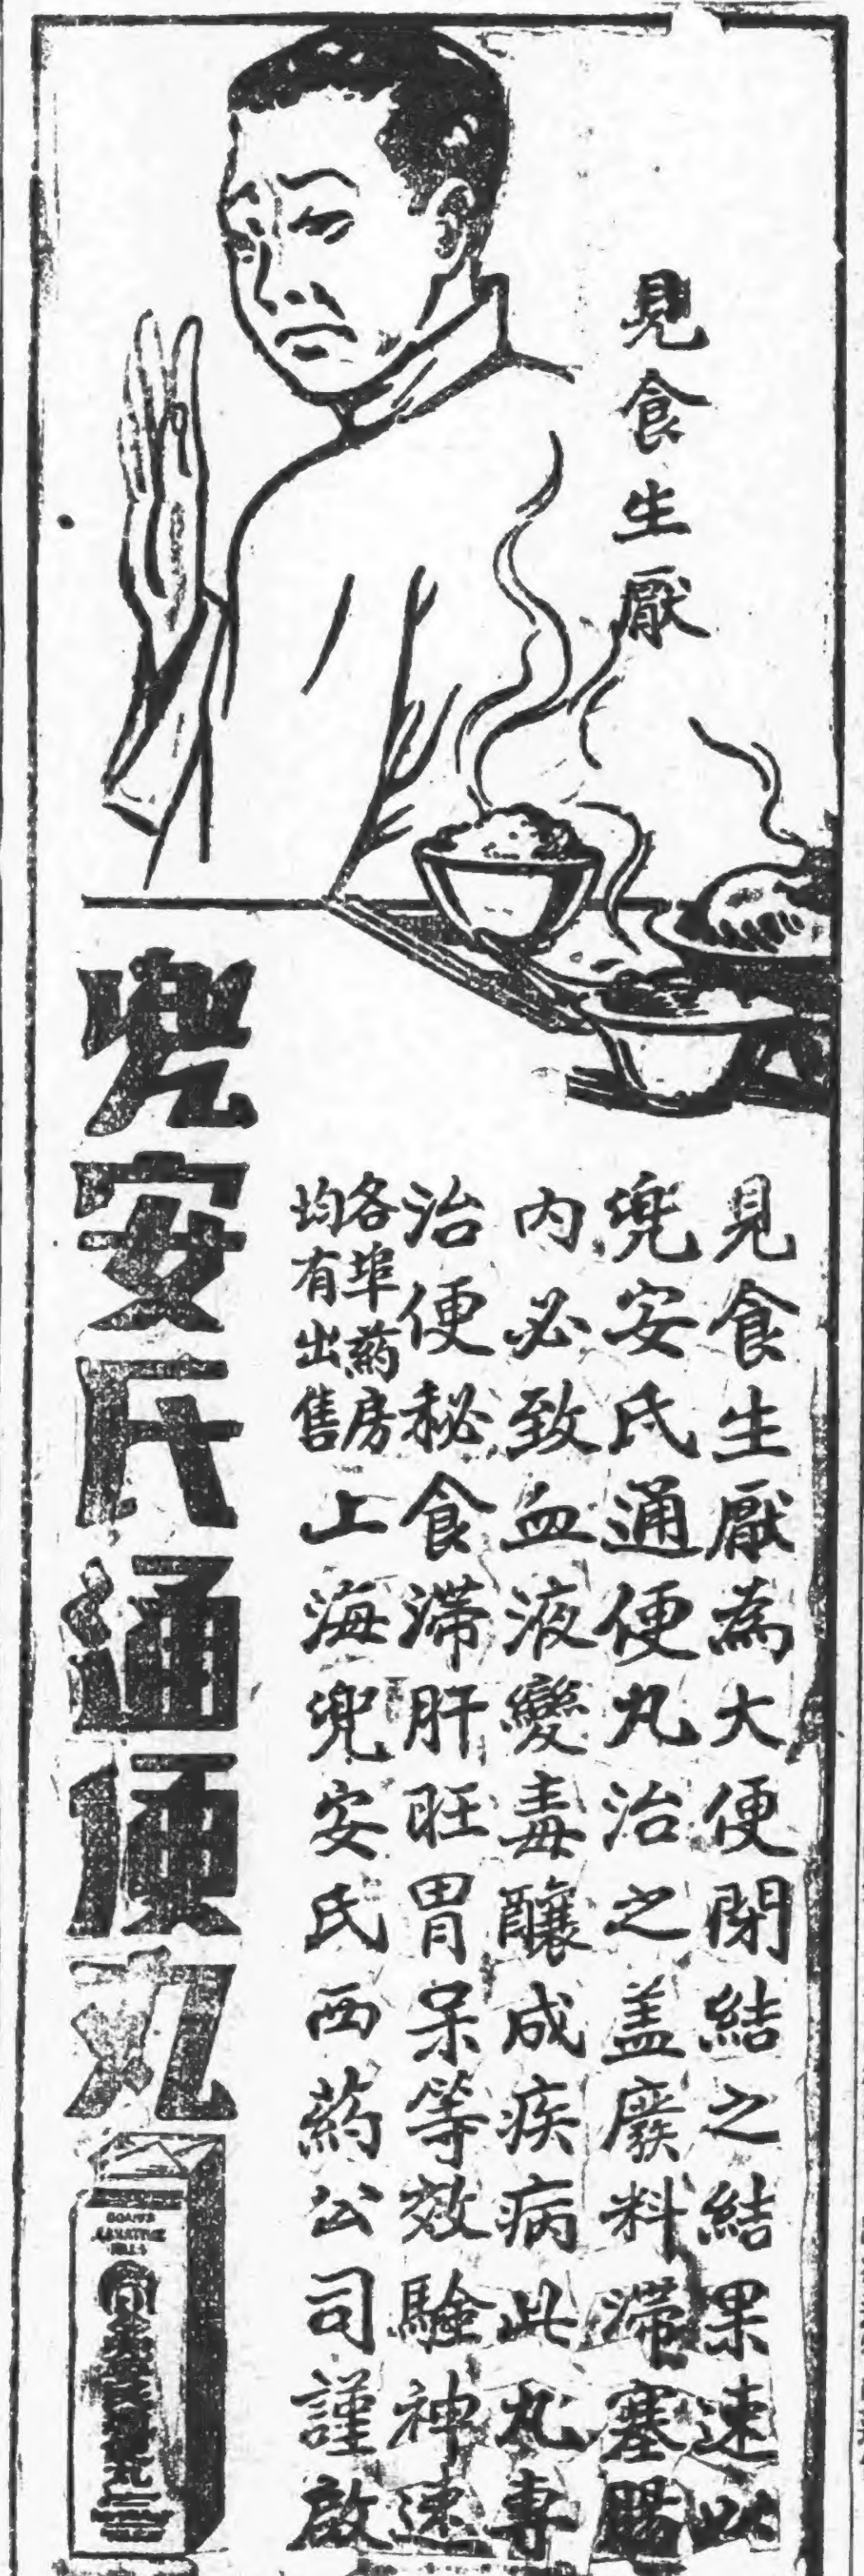 見食生厭
見食生厭為大便閉結之結果速以
兜安氏通便丸治之盖廢料滯塞腸
內必致血液變毒釀成疾病此丸專
治便秘食滯肝旺胃呆等效驗神速
各埠葯房
均有出售
上海兜安氏西葯公司謹啟
兜安氏通便丸
DOAN'S
LAXATIVE
PILLS